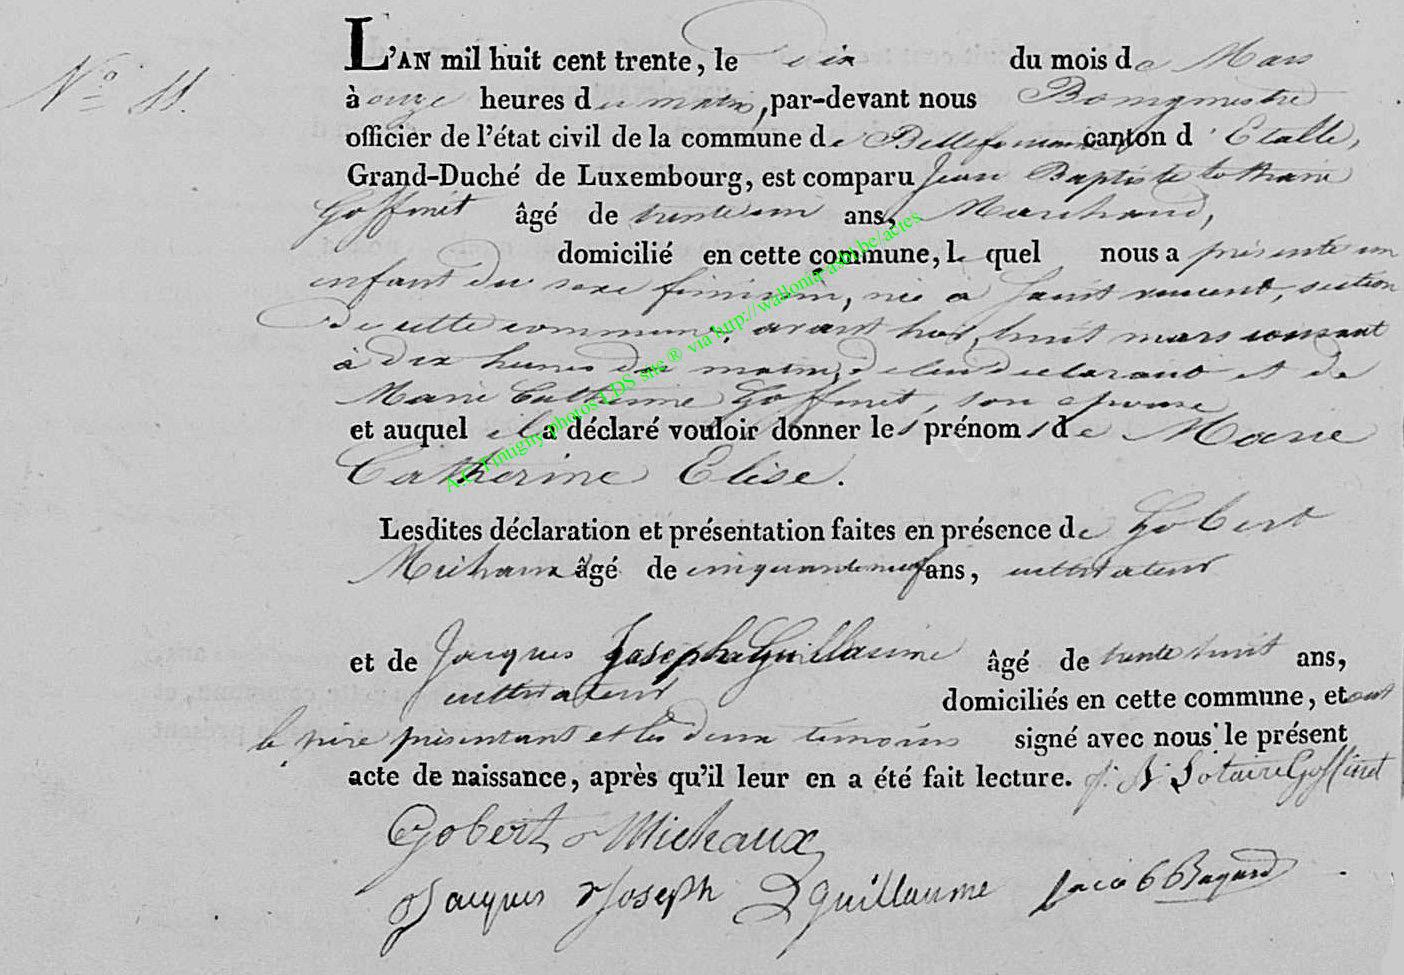 N° 11.
L'AN mil huit cent trente, le dix du mois de Mars
à onze heures du matin, par-devant nous Bourgmestre
officier de l'état civil de la commune de Bellefontaine canton d'Etalle,
Grand-Duché de Luxembourg, est comparu Jean Baptiste Lothaire
Goffinet âgé de trente un ans, Marchand,
domicilié en cette commune, le quel nous a présenté un
enfant du sexe féminin, née à Saint vincent, section
de cette commune, avant hier, huit mars courant
à dix heures du matin, de lui déclarant et de
Marie Catherine Goffinet, son épouse
et auquel il a déclaré vouloir donner les prénoms de Marie
Catherine Elise.
Lesdites déclaration et présentation faites en présence de Gobert
Michaux âgé de cinquante neuf ans, cultivateur
et de Jacques Joseph Guillaume âgé de trente huit ans,
cultivateur domiciliés en cette commune, et ont
le père présentant et les deux témoins signé avec nous le présent
acte de naissance, après qu'il leur en a été fait lecture. J. B. Lotaire Goffinet
Gobert Michaux
Jacques Joseph Guillaume Jacob Bagard
A.C. Tintigny photos LDS site ® via http://wallonia-asbl.be/actes